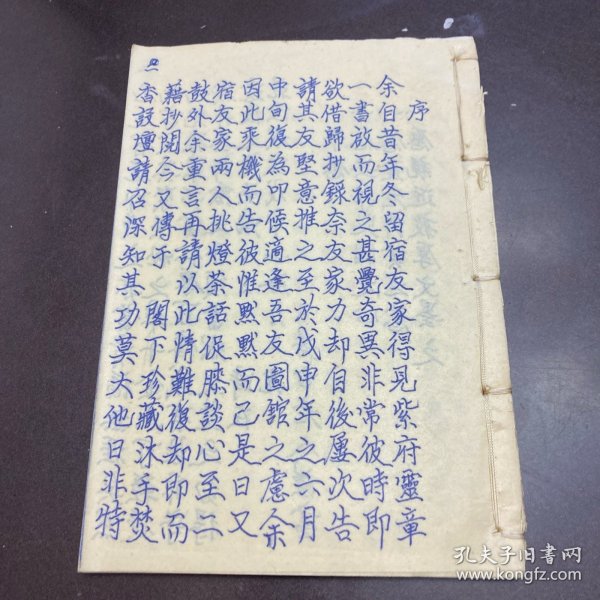 序
余自昔年冬留宿友家得見紫府靈章
一書啟而視之甚覺奇異非常彼時即
欲借歸抄錄奈友家力却自後屢次告
請其友堅意推之至於戊申年之六月
中旬復為叩候適逢吾友圖館之慮余
因此乘機而告彼惟默默而已是日又
宿友家兩人挑燈茶話促膝談心至二
鼓外余重言再請以此情難復却即而
藉抄閱今又傳于 閣下珍藏沐手焚
香設壇請召深知其功莫大他日非特
孔夫子旧书网
www.kongfz.com